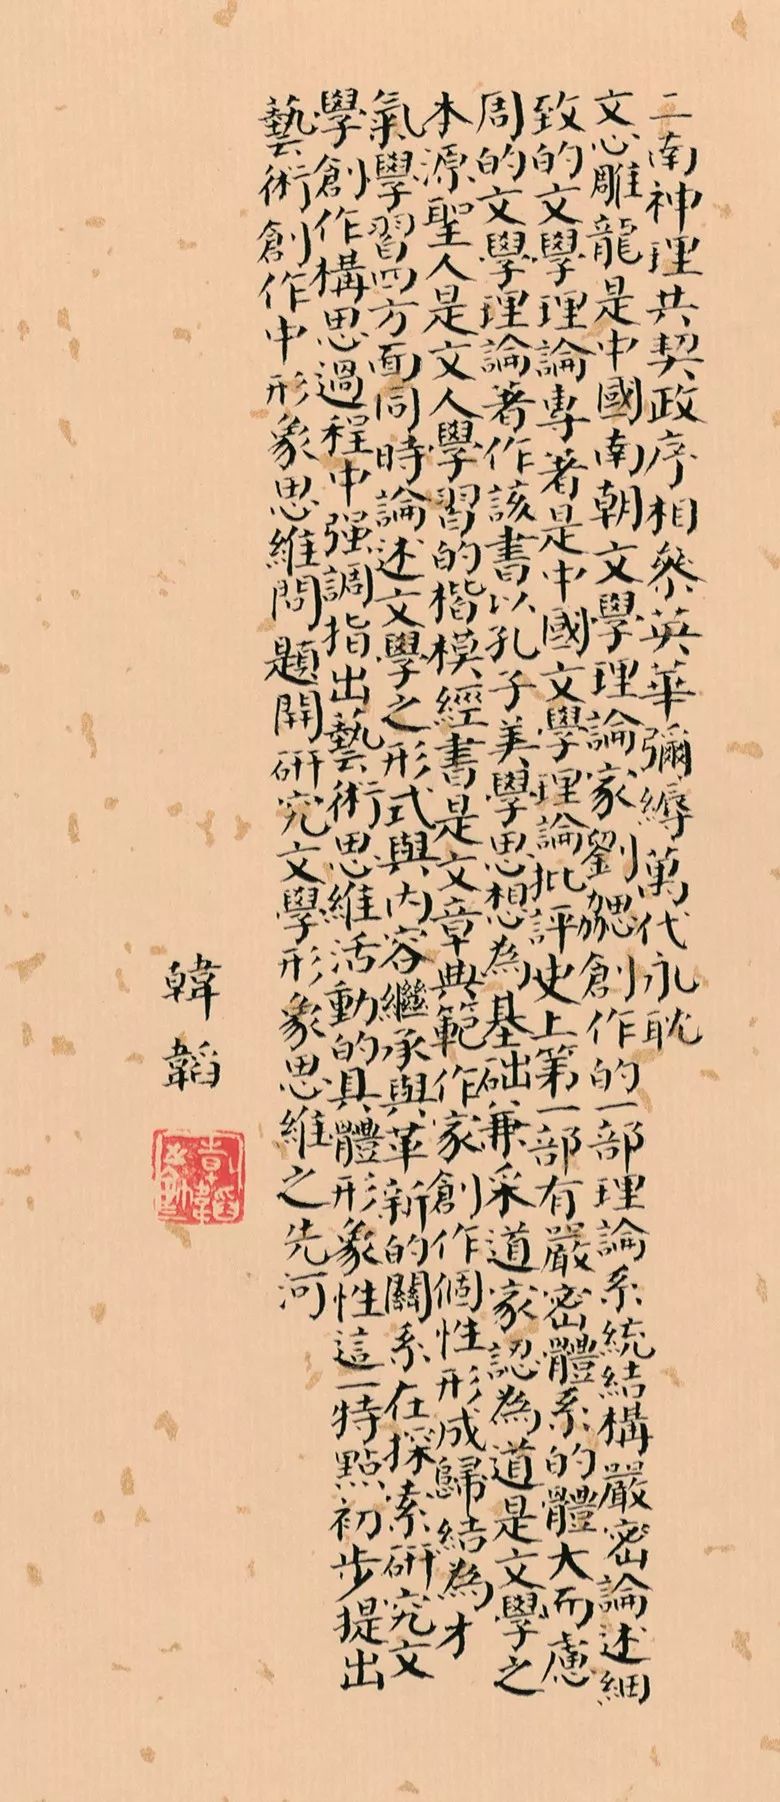 三南神理共契政序相參英華彌縟萬代永耽
文心雕龍是中國南朝文學理論家劉勰創作的一部理論系統結構嚴密論述細
致的文學理論專著是中國文學理論批評史上第一部有嚴密體系的體大而慮
周的文學理論著作該書以孔子美學思想為基础兼采道家認為道是文學之
本源聖人是文人學習的楷模經書是文章典範作家創作個性形成歸結為才
氣學習四方面同時論述文學之形式與内容繼承與革新的關系在探索研究文
學創作構思過程中强調指出藝術思維活動的具體形象性這一特點初步提出
藝術創作中形象思維問題開研究文學形象思維之先河
韓韜